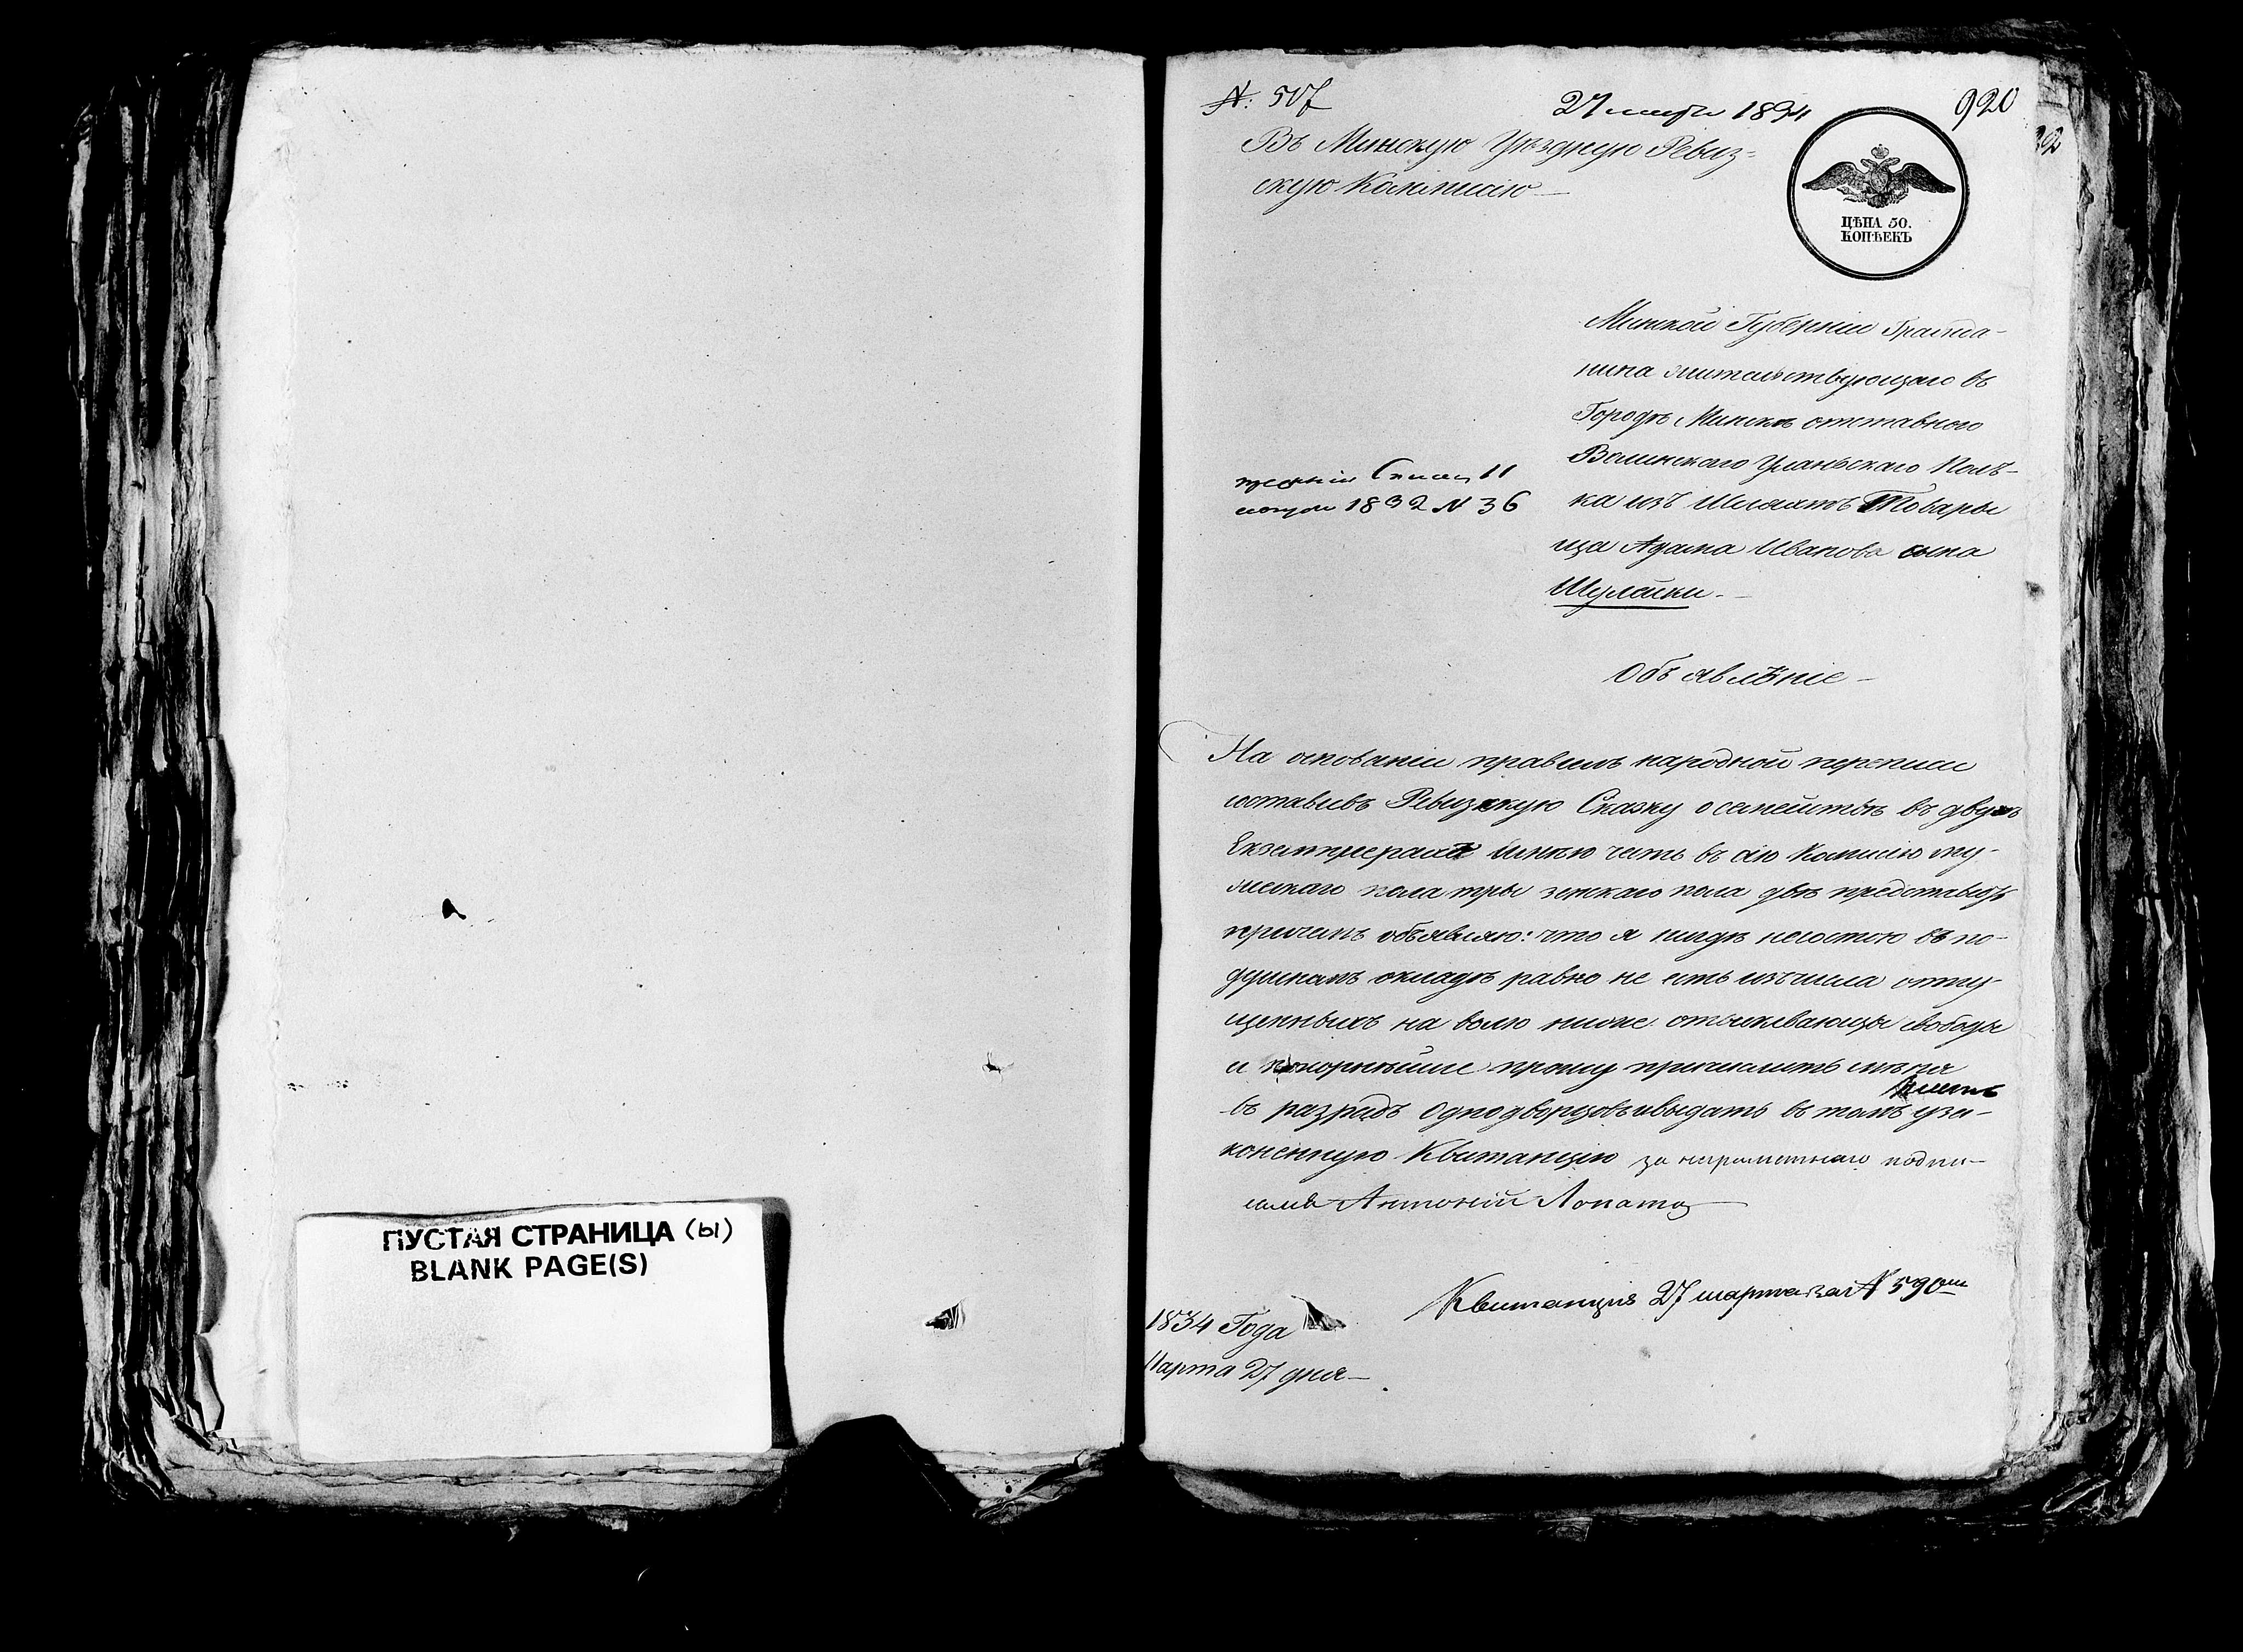 ПУСТАЯ СТРАНИЦА (ы)
BLANK PAGE(S)
№: 507
27 марта 1834
920
Въ Минскую Уѣздную Ревиз=
скую Коммисію —
ЦѢНА 50.
КОПѢЕКЪ
Минской Губерніи Гражда-
нина жительствующаго въ
Городѣ Минскѣ отставного
Волинского Уланьскаго Полъ-
ка изъ Шляхтъ Товары
ща Адама Иванова сына
Шулейки. —
1832 № 36
Объявлѣніе —
На основаніи правилъ народной переписи
составивъ Ревизскую Сказку о семействѣ въ двухъ
Екземплярахъ имѣю честь въ сію Комисію му-
жескаго пола тры женскаго пола двѣ представить
причемъ объявляю: что я нигдѣ несостою въ по-
душномъ окладѣ равно не есть изъ числа отпу-
щенныхъ на волю ниже отыскивающы свободы
и покорнѣйше прошу причислить мѣня
въ разрадъ Однодворцовъ и выдать въ томъ уза-
коненную Квитанцію за неграмотнаго подпи-
сался Антоній Лопата
Квитанція 27 марта за № 590
1834 Года
Марта 27 дня —